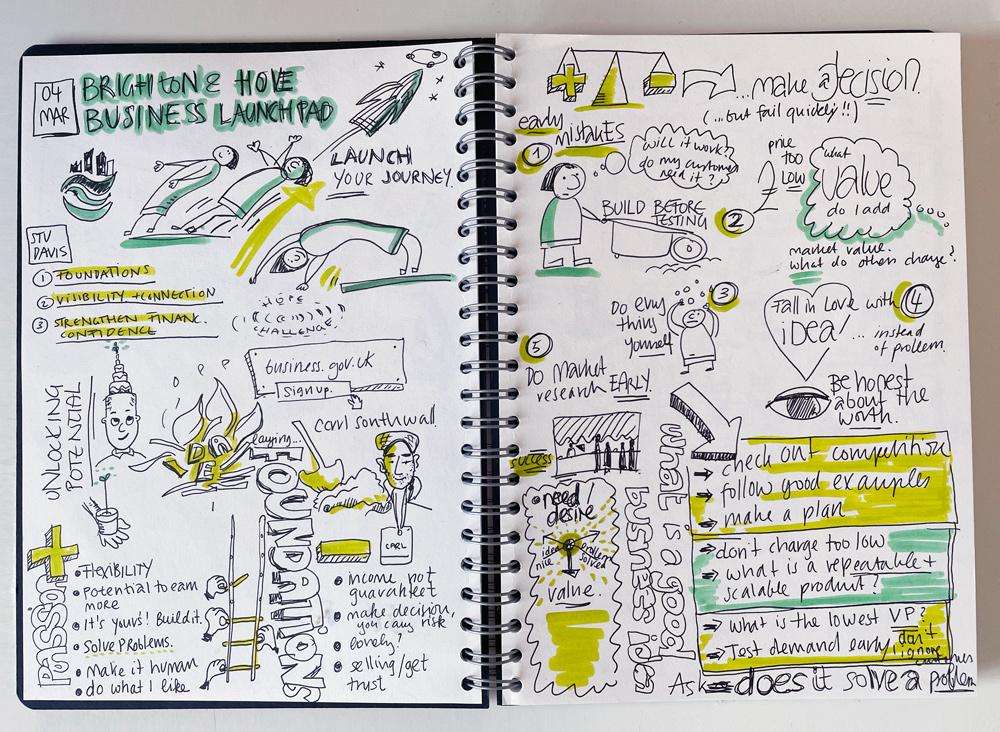 04
MAR
BRIGHTON & HOVE
BUSINESS LAUNCHPAD
LAUNCH
YOUR JOURNEY.
STU
DAVIS
1 FOUNDATIONS
2 VISIBILITY + CONNECTION
3 STRENGTHEN FINANC.
CONFIDENCE
HOPE
CHALLENGE
business.gov.uk
Sign up
UNLOCKING
POTENTIAL
IDEA
laying...
FOUNDATIONS
carl southwall
CARL
passion
• FLEXIBILITY
• Potential to earn
more
• It's yours! Build it.
• Solve Problems.
• Make it human
• do what I like
• income not
guaranteet
• make decision,
you carry risk
• lonely?
• selling/get
trust
...make a decision.
(...but fail quickly!!)
early
mistakes
1
will it work?
do my customer
need it?
BUILD BEFORE
TESTING
2
price
too
low
what
value
do I add
market value.
what do others charge?
3
Do every
thing
yourself
Fall in Love with
idea!
4
... instead
of problem.
5
Do Market
research EARLY.
Be honest
about the
worth.
success
• need /
desire
idea
nice
problem
solved
value.
what is a good
business idea
→ check out competition
→ follow good examples
→ make a plan
→ don't charge too low
→ what is a repeatable +
scalable product?
→ what is the lowest VP?
→ Test demand early / don't
ignore
customers
Ask → does it solve a problem